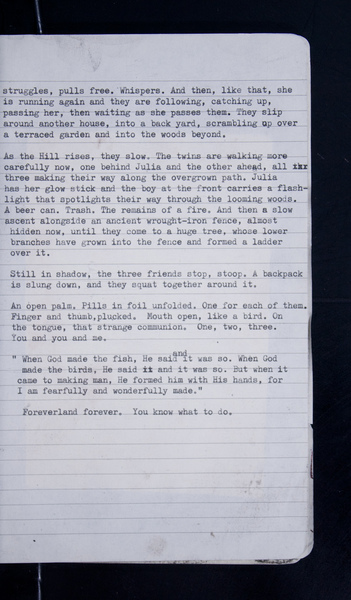 struggles, pulls free. Whispers. And then, like that, she
is running again and they are following, catching up,
passing her, then waiting as she passes them. They slip
around another house, into a back yard, scrambling up over
a terraced garden and into the woods beyond.
As the Hill rises, they slow. The twins are walking more
carefully now, one behind Julia and the other ahead, all thr
three making their way along the overgrown path. Julia
has her glow stick and the boy at the front carries a flash-
light that spotlights their way through the looming woods.
A beer can. Trash. The remains of a fire. And then a slow
ascent alongside an ancient wrought-iron fence, almost
hidden now, until they come to a huge tree, whose lower
branches have grown into the fence and formed a ladder
over it.
Still in shadow, the three friends stop, stoop. A backpack
is slung down, and they squat together around it.
An open palm. Pills in foil unfolded. One for each of them.
Finger and thumb,plucked. Mouth open, like a bird. On
the tongue, that strange communion. One, two, three.
You and you and me.
and
" When God made the fish, He said it was so. When God
made the birds, He said it and it was so. But when it
came to making man, He formed him with His hands, for
I am fearfully and wonderfully made."
Foreverland forever. You know what to do.